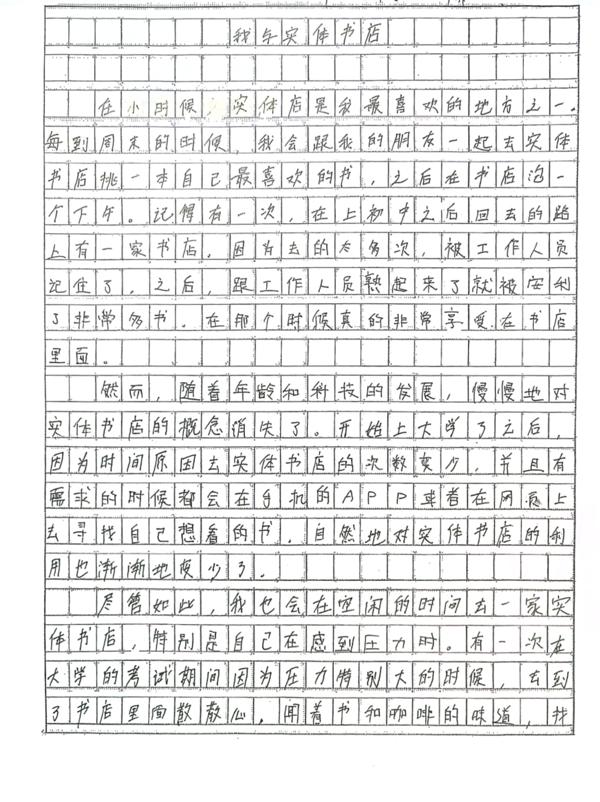 我与实体书店
在小时候，实体店是我最喜欢的地方之一。
每到周末的时候，我会跟我的朋友一起去实体
书店挑一本自己最喜欢的书，之后在书店泡一
个下午。记得有一次，在上初中之后回去的路
上有一家书店，因为去的太多次，被工作人员
记住了，之后，跟工作人员熟起来了就被安利
了非常多书。在那个时候真的非常享受在书店
里面。
然而，随着年龄和科技的发展，慢慢地对
实体书店的概念消失了。开始上大学了之后，
因为时间原因去实体书店的次数变少，并且有
需求的时候都会在手机的APP或者在网页上
去寻找自己想看的书，自然地对实体书店的利
用也渐渐地变少了。
尽管如此，我也会在空闲的时间去一家实
体书店，特别是自己在感到压力时。有一次在
大学的考试期间因为压力特别大的时候，去到
了书店里面散散心，闻着书和咖啡的味道，找